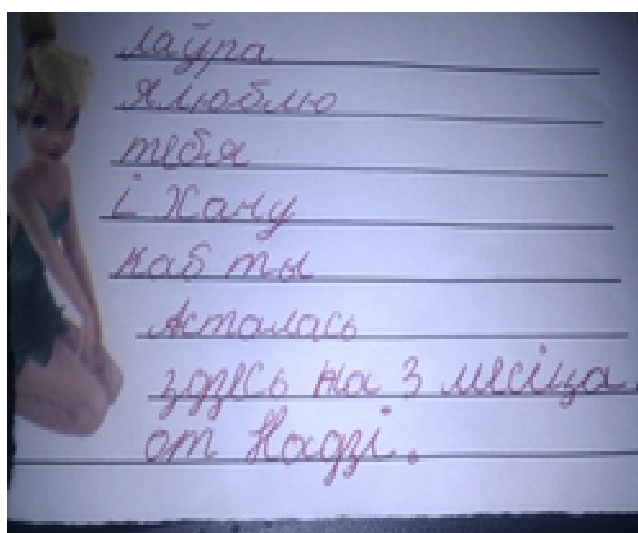 лаўра
Я люблю
тебя
і Хачу
каб ты
Асталась
здзесь на 3 месіца.
от Надзі.